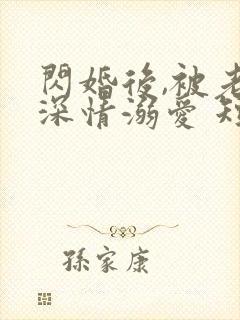 閃婚後,被老
深情溺愛 短
孫家康